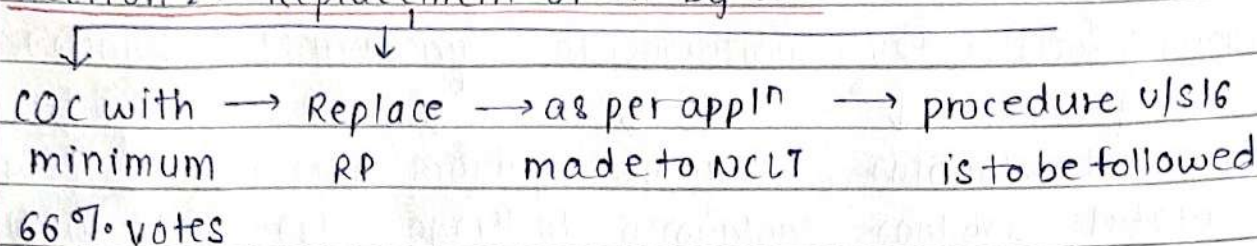 Replacement of by
COC with → Replace → as per appln → procedure u/s16
minimum RP made to NCLT is to be followed
66% votes